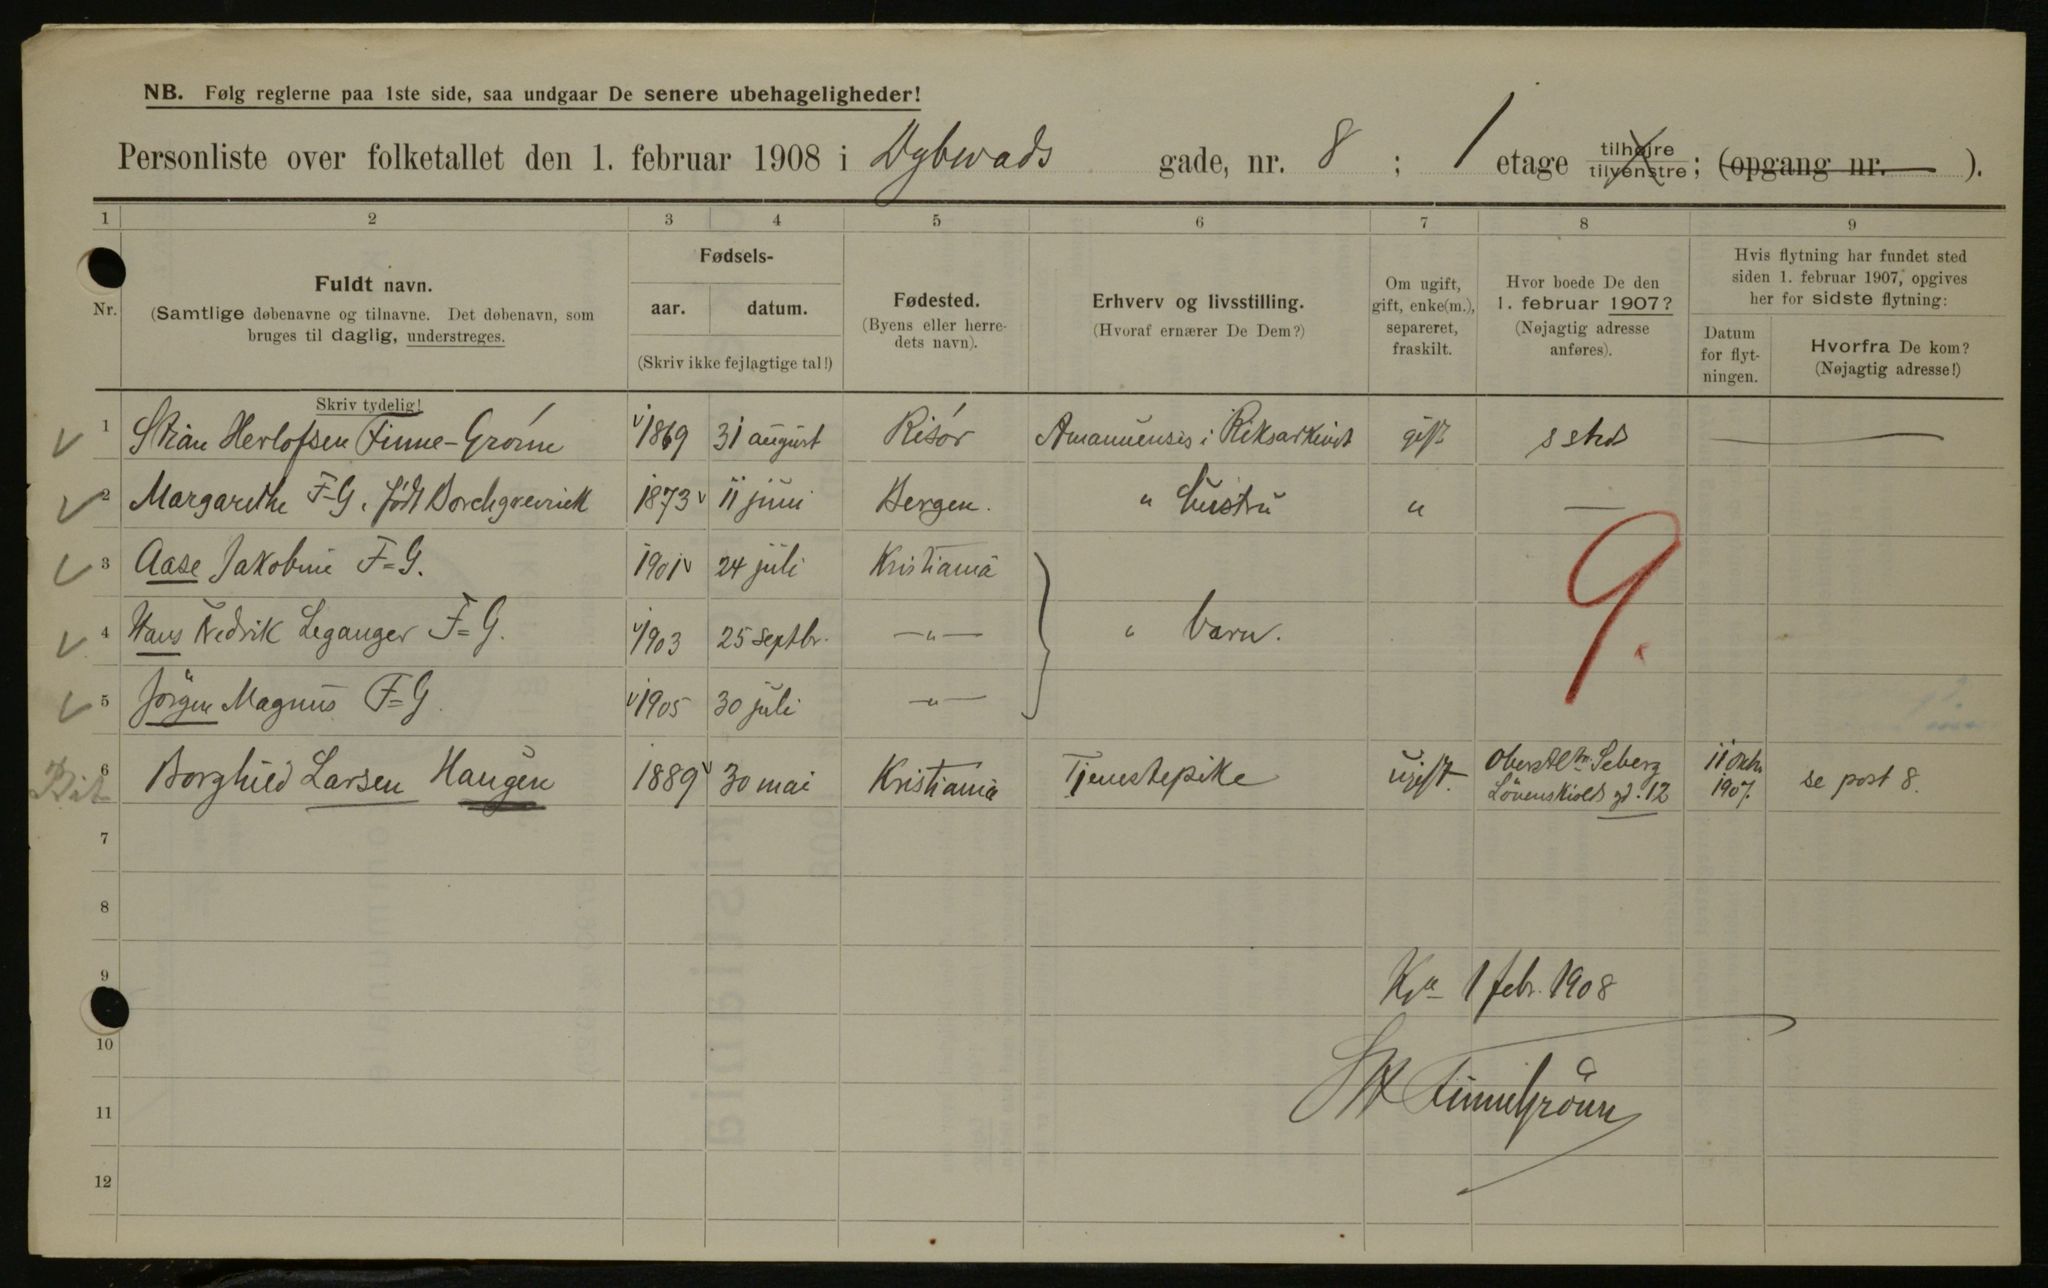 NB. Følg reglerne paa 1ste side, saa undgaar De senere ubehageligheder!
Personliste over folketallet den 1. februar 1908 i Dybwads gade, nr. 8 ; 1 etage tilhøjre tilvenstre ; (opgang nr. ).
1 2 3 4 5 6 7 8 9
Nr.
Fuldt navn.
(Samtlige døbenavne og tilnavne. Det døbenavn, som
bruges til daglig, understreges.
Skriv tydelig!
Fødsels-
aar. datum.
(Skriv ikke fejlagtige tal!)
Fødested.
(Byens eller herre-
dets navn).
Erhverv og livsstilling.
(Hvoraf ernærer De Dem?)
Om ugift,
gift, enke(m.),
separeret,
fraskilt.
Hvor boede De den
1. februar 1907?
(Nøjagtig adresse
anføres).
Hvis flytning har fundet sted
siden 1. februar 1907, opgives
her for sidste flytning:
Datum
for flyt-
ningen.
Hvorfra De kom?
(Nøjagtig adresse!)
1 Stian Herlofsen Finne-Grönn 1869 31 august Risör Amanuensis i Riksarkivet gift s sted —
2 Margarethe F-G. født Borchgrevink 1873 11 juni Bergen. " hustru " —
3 Aase Jakobine F=G. 1901 24 juli Kristiania
4 Hans Fredrik Leganger F=G. 1903 25 septbr. —"— " barn.
5 Jörgen Magnus F=G. 1905 30 juli —"—
9.
6 Borghild Larsen Haugen 1889 30 mai Kristiania Tjenestepike ugift. Oberstltn Seberg
Lövenskiolds gd. 12
11 oktr.
1907.
se post 8.
7
8
9
Kra 1 febr. 1908
10
SH FinneGrönn
11
12